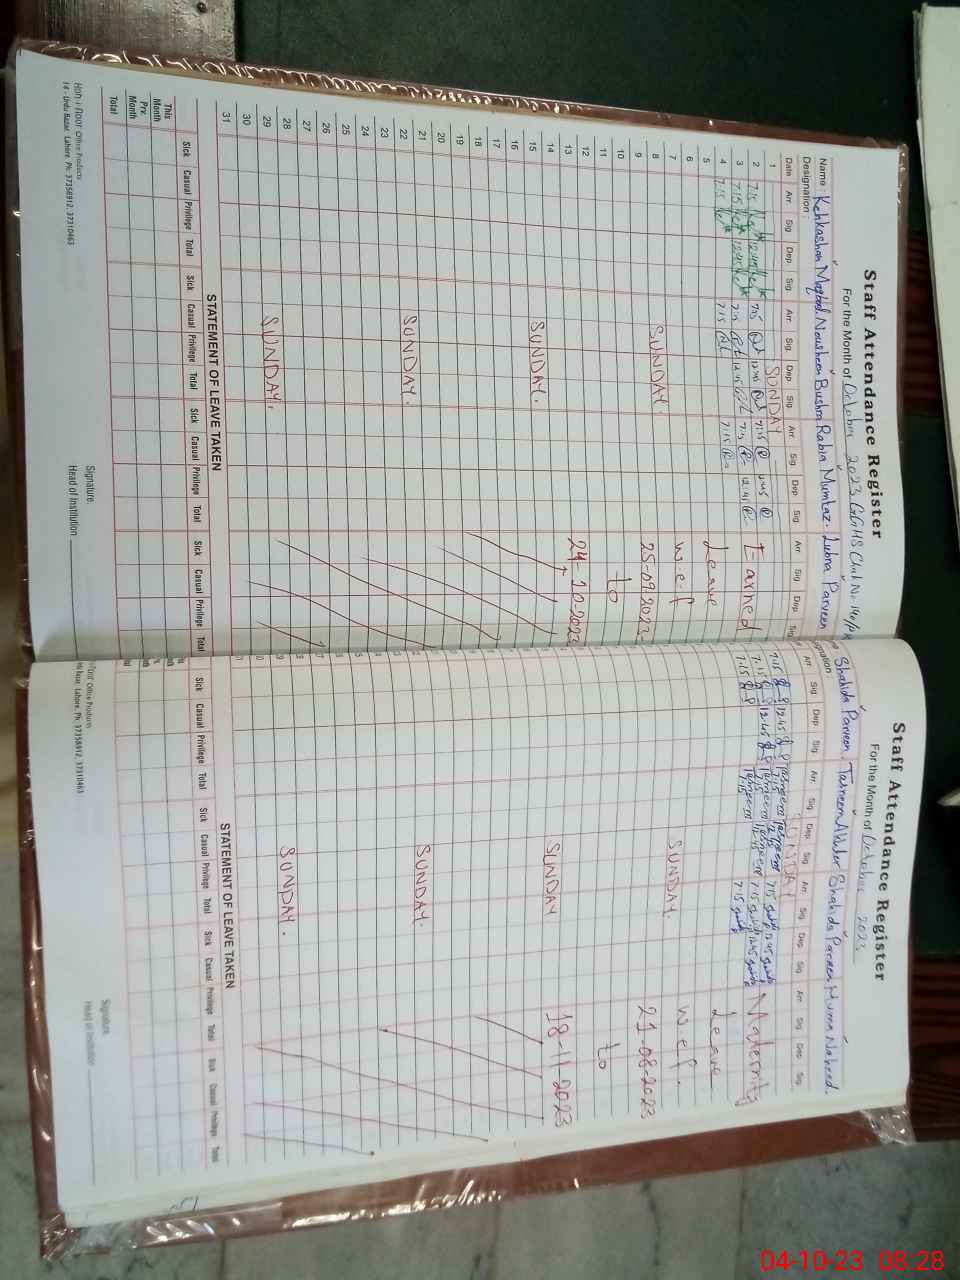 Staff Attendance Register
For the Month of October 2023 GGHS Chak No
Name : Kehkashan Maqbool. Nousheen Bushra Rabia Mumtaz. Lubna Parveen
Designation :
Date Arr. Sig Dep Sig. Arr. Sig. Dep Sig. Arr. Sig. Dep Sig. Arr. Sig. Dep Sig.
1 SUNDAY
2 7:15 12:45 7:15 12:45 7:15 12:45 Earned
3 7:15 12:45 7:15 12:45 7:15 12:45
4 7:15 7:15 7:15
5 Leave
6
7 w.e.f
8 SUNDAY.
9 25-09-2023
10
11 to
12
13 24-10-2023
14
15 SUNDAY.
16
17
18
19
20
21
22 SUNDAY.
23
24
25
26
27
28
29 SUNDAY.
30
31
STATEMENT OF LEAVE TAKEN
Sick Casual Privilege Total Sick Casual Privilege Total Sick Casual Privilege Total Sick Casual Privilege Total
This Month
Prv. Month
Total
Signature.
Head of Institution
Office Products
14 - Urdu Bazar, Lahore. Ph: 37358912, 37310463
Staff Attendance Register
For the Month of October 2023
Shahida Parveen. Tasneem Akhter Shahida Parveen Huma Naheed.
Arr. Sig. Dep Sig. Arr. Sig. Dep Sig. Arr. Sig. Dep Sig. Arr. Sig. Dep Sig.
SUNDAY
7:15 12:45 Tasneem 7:15 Tasneem 12:45 7:15 12:45 Maternity
7:15 12:45 Tasneem 7:15 Tasneem 12:45 7:15 12:45
7:15 Tasneem 7:15 7:15
Leave
w.e.f.
SUNDAY.
21-08-2023
to
18-11-2023
SUNDAY
SUNDAY.
SUNDAY.
STATEMENT OF LEAVE TAKEN
Sick Casual Privilege Total Sick Casual Privilege Total Sick Casual Privilege Total Sick Casual Privilege Total
Signature.
Head of Institution
Office Products
Lahore. Ph: 37358912, 37310463
04-10-23 08:28